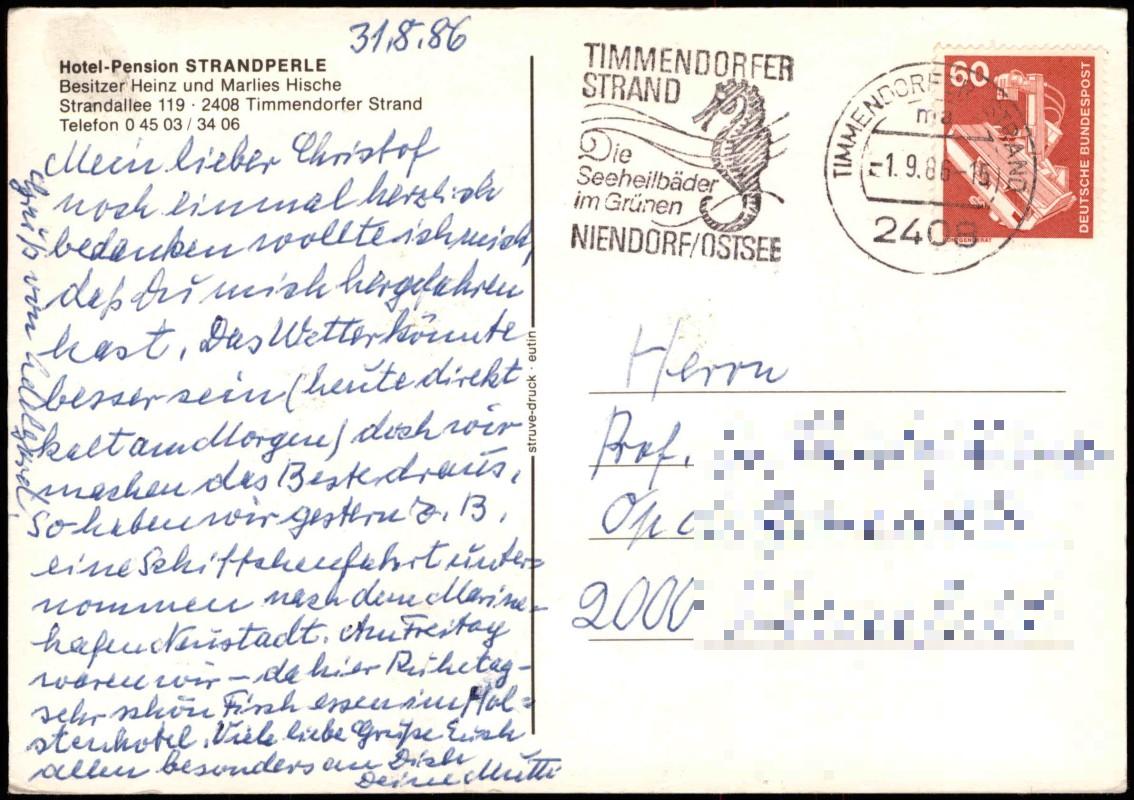 31.8.86
Hotel-Pension STRANDPERLE
Besitzer Heinz und Marlies Hische
Strandallee 119 · 2408 Timmendorfer Strand
Telefon 0 45 03 / 34 06
Mein lieber Christof
noch einmal herzlich
bedanken wollte ich mich,
daß Du mich hergefahren
hast. Das Wetter könnte
besser sein (heute direkt
kalt am Morgen) doch wir
machen das Beste draus.
So haben wir gestern z. B.
eine Schiffchenfahrt unter=
nommen nach dem Marine-
hafen Neustadt. Am Freitag
waren wir – da hier Ruhetag –
sehr schön Fisch essen im Hol=
stenhotel. Viele liebe Grüße Euch
allen besonders an Dich
Deine Mutti
Gruß von
struve-druck · eutin
TIMMENDORFER
STRAND
Die
Seeheilbäder
im Grünen
NIENDORF/OSTSEE
TIMMENDORFER STRAND
ma
-1.9.86-15
2408
60
DEUTSCHE BUNDESPOST
Herrn
Prof.
2000